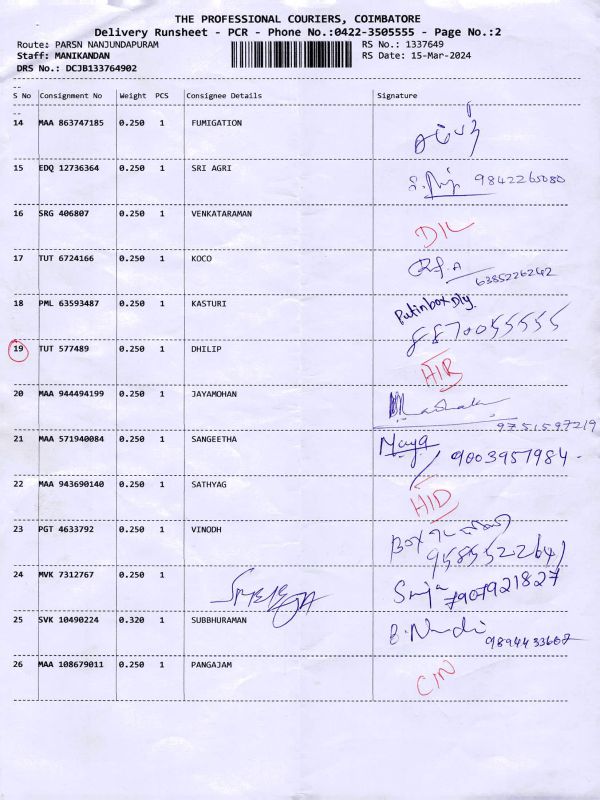 THE PROFESSIONAL COURIERS, COIMBATORE
Delivery Runsheet - PCR - Phone No.:0422-3505555 - Page No.:2
Route: PARSN NANJUNDAPURAM RS No.: 1337649
Staff: MANIKANDAN RS Date: 15-Mar-2024
DRS No.: DCJB133764902
--
S No Consignment No Weight PCS Consignee Details Signature
--
14 MAA 863747185 0.250 1 FUMIGATION
15 EDQ 12736364 0.250 1 SRI AGRI 9842265080
16 SRG 406807 0.250 1 VENKATARAMAN D/L
17 TUT 6724166 0.250 1 KOCO 6385226242
18 PML 63593487 0.250 1 KASTURI Putinbox Dly.
8870055555
19 TUT 577489 0.250 1 DHILIP H/R
20 MAA 944494199 0.250 1 JAYAMOHAN
9751597219
21 MAA 571940084 0.250 1 SANGEETHA Maya 9003957984
22 MAA 943690140 0.250 1 SATHYAG H/D
23 PGT 4633792 0.250 1 VINODH Box
9585522641
24 MVK 7312767 0.250 1 7907921827
25 SVK 10490224 0.320 1 SUBBHURAMAN
26 MAA 108679011 0.250 1 PANGAJAM C/N